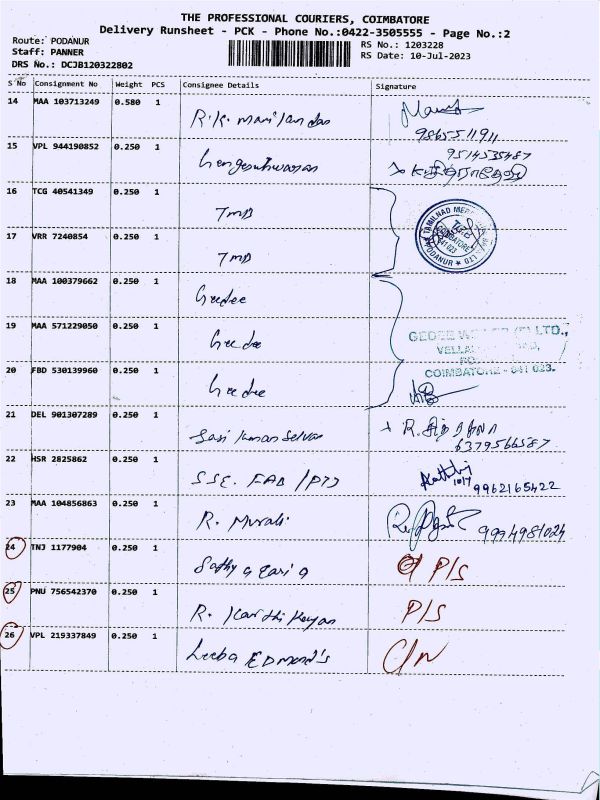 THE PROFESSIONAL COURIERS, COIMBATORE
Delivery Runsheet - PCK - Phone No.:0422-3505555 - Page No.:2
Route: PODANUR
Staff: PANNER
DRS No.: DCJB120322802
RS No.: 1203228
RS Date: 10-Jul-2023
S No Consignment No Weight PCS Consignee Details Signature
14 MAA 103713249 0.580 1
9865511911
15 VPL 944190852 0.250 1
9514535487
16 TCG 40541349 0.250 1 TMB
17 VRR 7240854 0.250 1 TMB
TAMILNAD
COIMBATORE
641 023
PODANUR
18 MAA 100379662 0.250 1 Geedee
19 MAA 571229050 0.250 1 Geedee
GEDEE LTD.,
20 FBD 530139960 0.250 1 Geedee
COIMBATORE - 641 023.
21 DEL 901307289 0.250 1 Sasi Kumar Selvan
6379566587
22 HSR 2825862 0.250 1 SSE. FAB /PTJ
10/7 9962165422
23 MAA 104856863 0.250 1 R. Murali
9994981024
24 TNJ 1177904 0.250 1 P/S
25 PNU 756542370 0.250 1 R. Karthikeyan P/S
26 VPL 219337849 0.250 1 Leeba EDmond's C/N